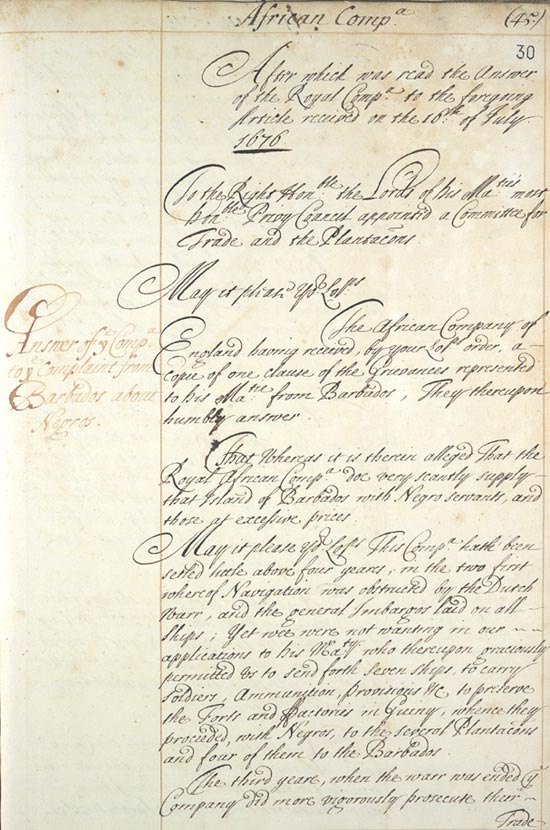 African Comp.ᵃ
(45.)
30
After which was read the Answer
of the Royal Comp.ᵃ to the foregoing
Article received on the 16.ᵗʰ of July
1676
To the Right Hon.ᵇˡᵉ the Lords of his Ma.ᵗⁱᵉˢ most
hon.ᵇˡᵉ Privy Councel appointed a Committee for
Trade and the Plantac̃ons
May it pleas.ᵉ yo.ʳ Lo.ᵖᵖˢ
The African Company of
England having received, by your Lo.ᵖˢ order, a
copie of one clause of the Grievances represented
to his Ma.ᵗⁱᵉ from Barbados, They thereupon
humbly answer.
Answer of yᵉ Comp.ᵃ
to yᵉ Complaint from
Barbados about
Negros.
That Whereas it is therein alleged That the
Royal African Comp.ᵃ doe very scantly supply
that Island of Barbados with Negro servants, and
those at excessive prices
May it please yo.ʳ Lo.ᵖˢ This Comp.ᵃ hath been
setled little above four years, in the two first
whereof Navigation was obstructed by the Dutch
Warr, and the general Imbargos laid on all
Ships; Yet wee were not wanting in our
applications to his Ma.ᵗʸ who thereupon graciously
permitted Us to send forth seven ships, to carry
Soldiers, Ammunition, Provisions &c to preserve
the Forts and Factories in Guiny, whence they
proceeded, with Negros, to the several Plantac̃ons
and four of them to the Barbados.
The third yeare, when the warr was ended yᵉ
Company did more vigorously prosecute their
Trade